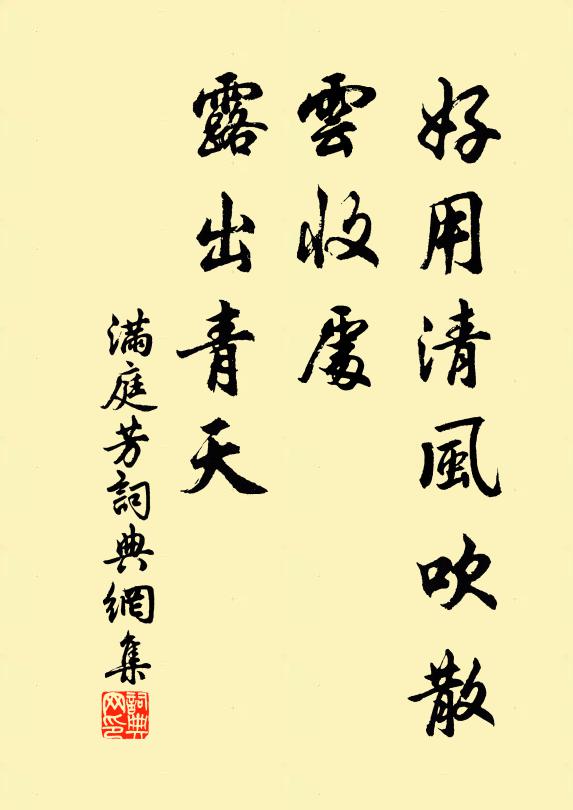 好用清風吹散
雲收處
露出青天
滿庭芳詞典網集
詞典
网印